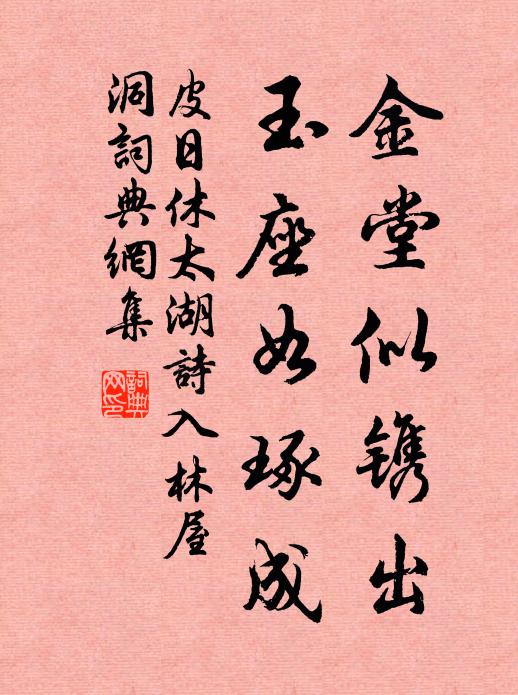 金堂似镌出
玉座如琢成
皮日休太湖詩入林屋
洞詞典網集
詞典
网印